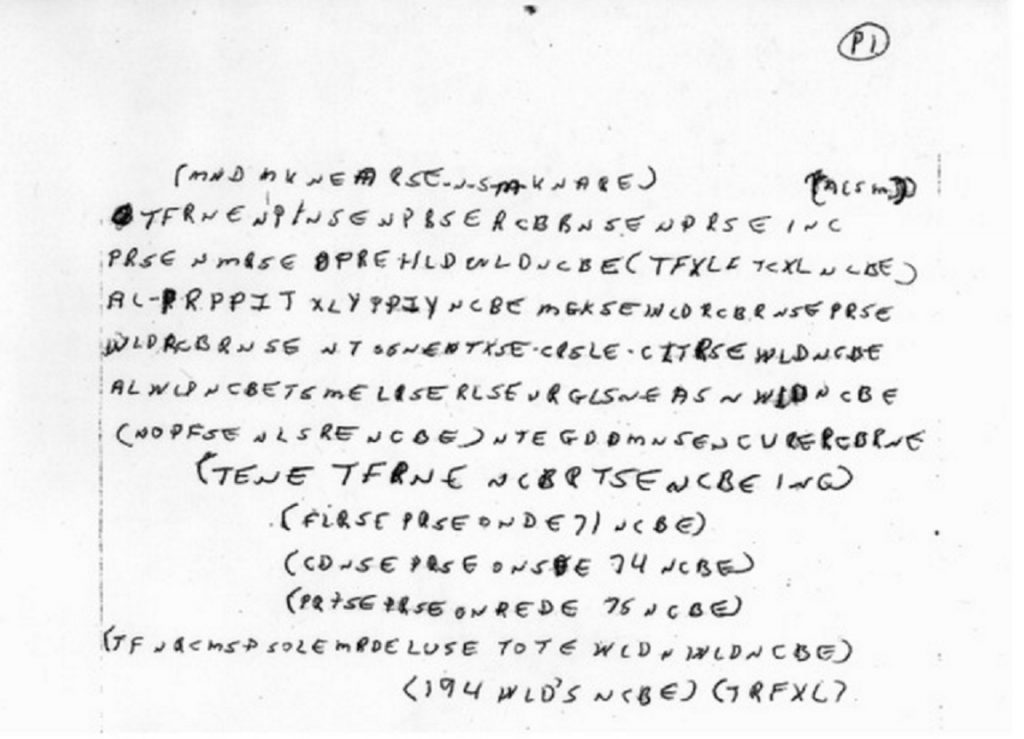 P1
(MND MKNEARSE-N-S-M-KNARE) (ACSM)
TFRNE NPTNSENPBSERCBBRNSE NPRSE INC
PRSE NMRSE OPREHLDWLDNCBE(TFXLF TCXL NCBE)
AL-PRPPIT XLYPPIY NCBE MGKSEWLDRCBRNSEPRSE
WLDRCBRNSE NTSGNENTXSE-CRSLE-CITRSE WLDNCBE
ALWLPNCBETSMELRSERLSEURGLSNEASNWLDNCBE
(NOPFSE NLSRE NCBE) NTEGDDMNSENCURERCBRNE
(TENE TFRNE NCBRTSENCBE INC)
(FLRSE PRSE ONDE 71 NCBE)
(CDNSE PRSE ONSDE 74 NCBE)
(PRTSE PRSE ONREDE 75 NCBE)
(TF NRCMSP SOLEMRDELUSE TOTE WLDN WLDNCBE)
(194 WLD'S NCBE) (TRFXL)